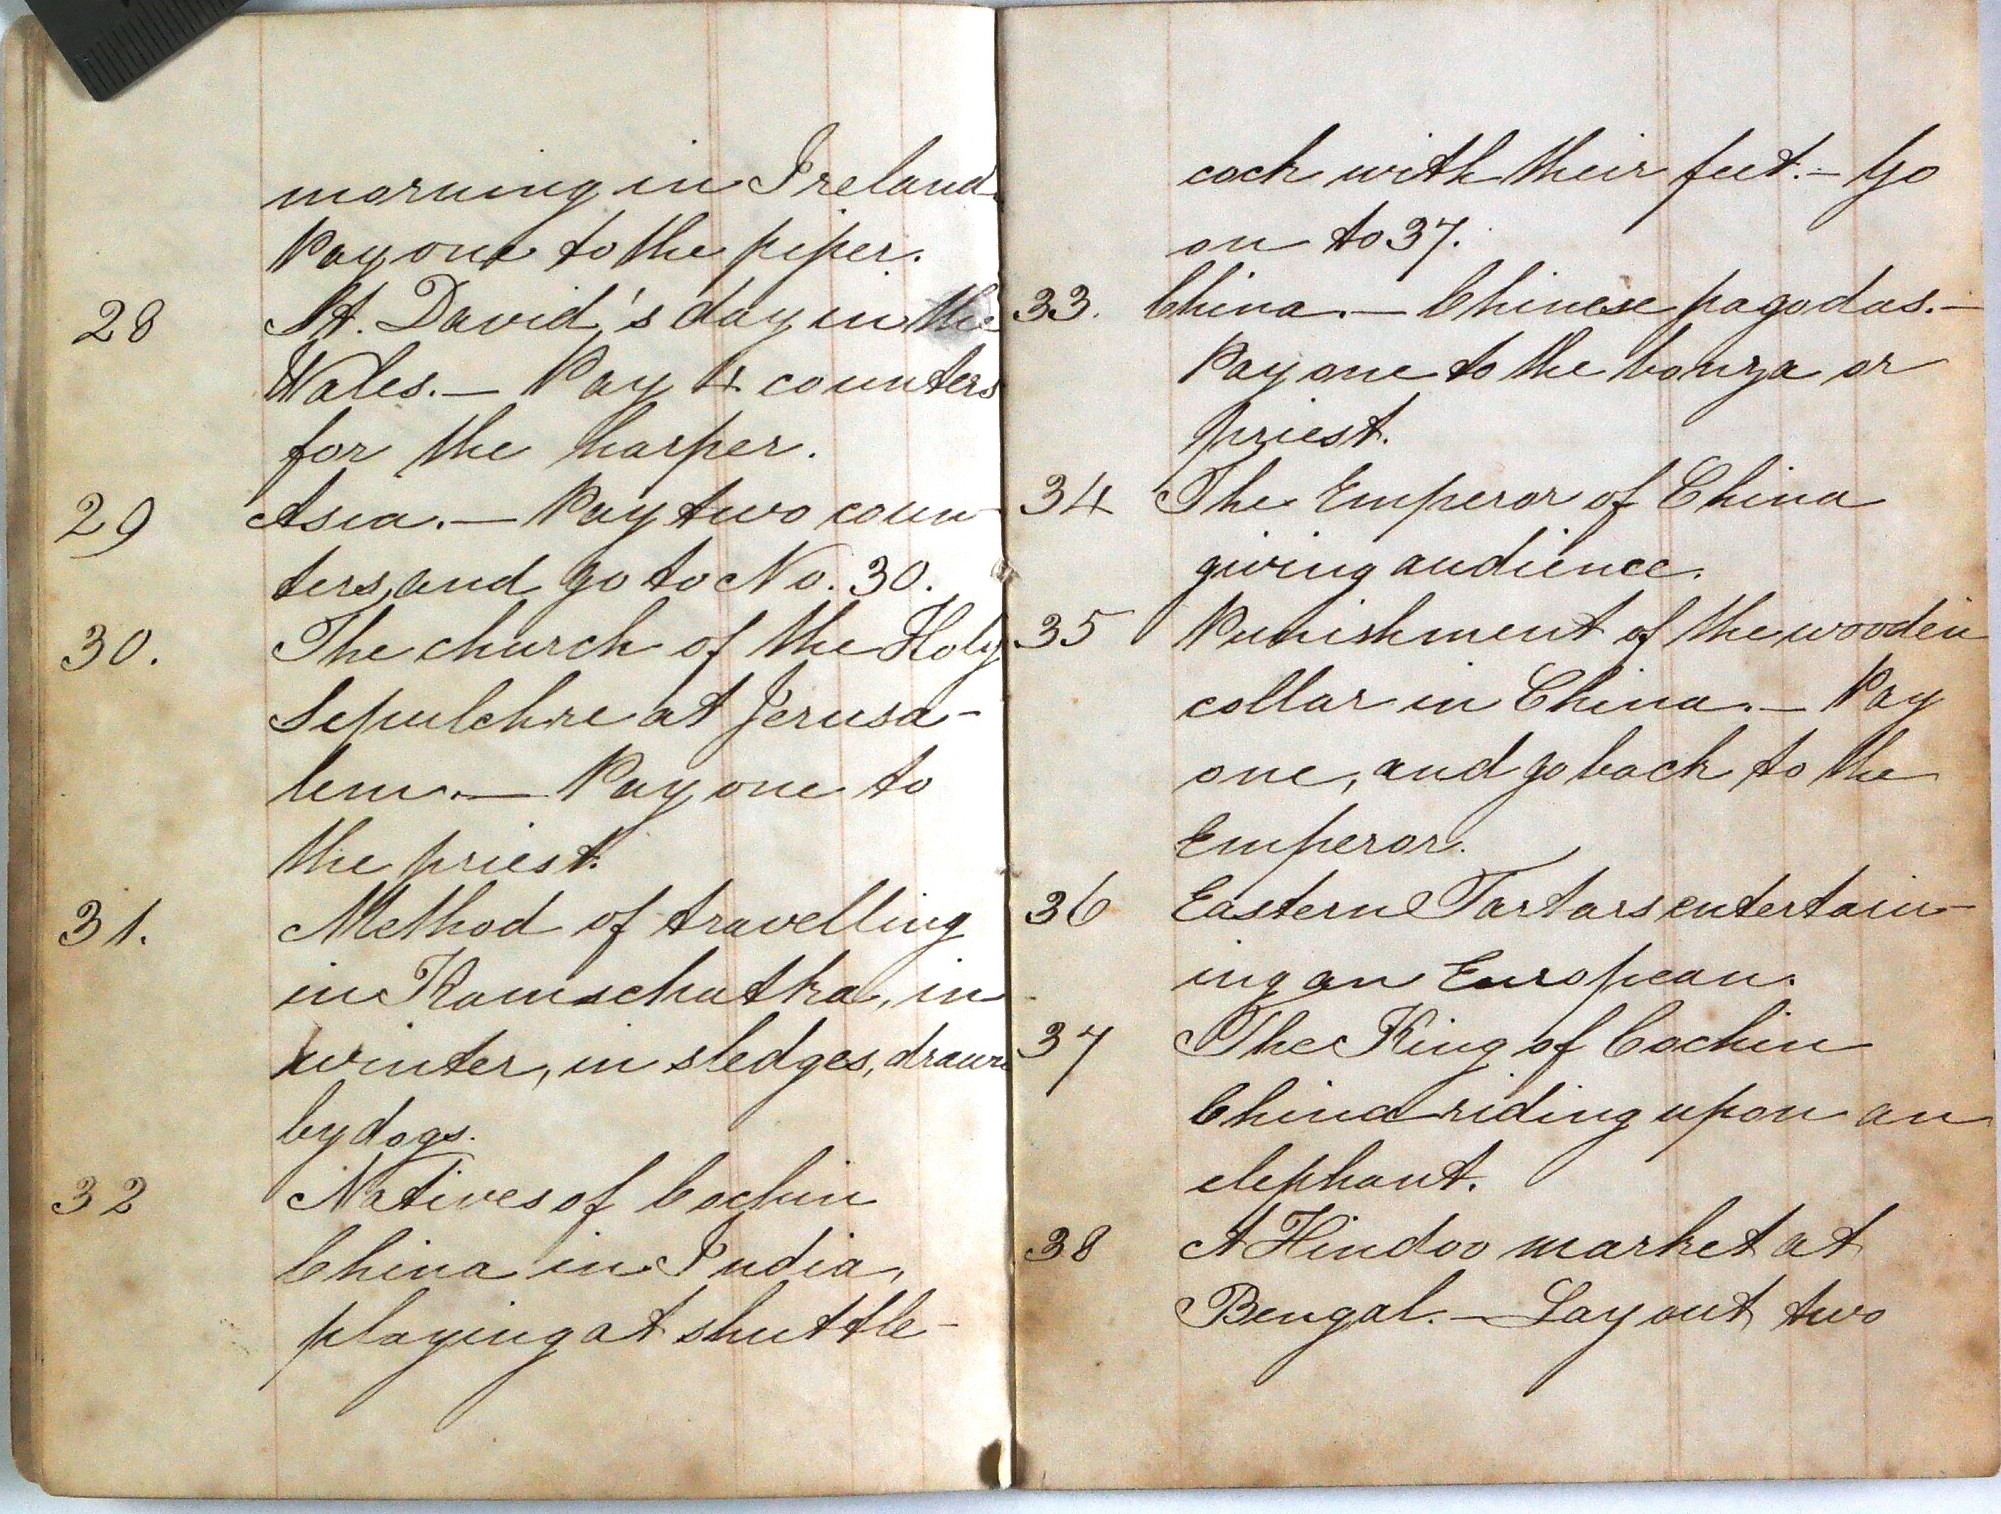 morning in Ireland.
Pay one to the piper.
28 St. David's day in the
Wales. — Pay 4 counters
for the harper.
29 Asia. — Pay two coun-
ters, and go to No. 30.
30. The church of the Holy
Sepulchre at Jerusa-
lem. — Pay one to
the priest.
31. Method of travelling
in Kamschatka, in
winter, in sledges, drawn
by dogs.
32 Natives of Cochin
China in India,
playing at shuttle-
cock with their feet. — Go
on to 37.
33. China. — Chinese pagodas. —
Pay one to the bonza or
priest.
34 The Emperor of China
giving audience.
35 Punishment of the wooden
collar in China. — Pay
one, and go back to the
Emperor.
36 Eastern Tartars entertain-
ing an European.
37 The King of Cochin
China riding upon an
elephant.
38 A Hindoo market at
Bengal. — Lay out two